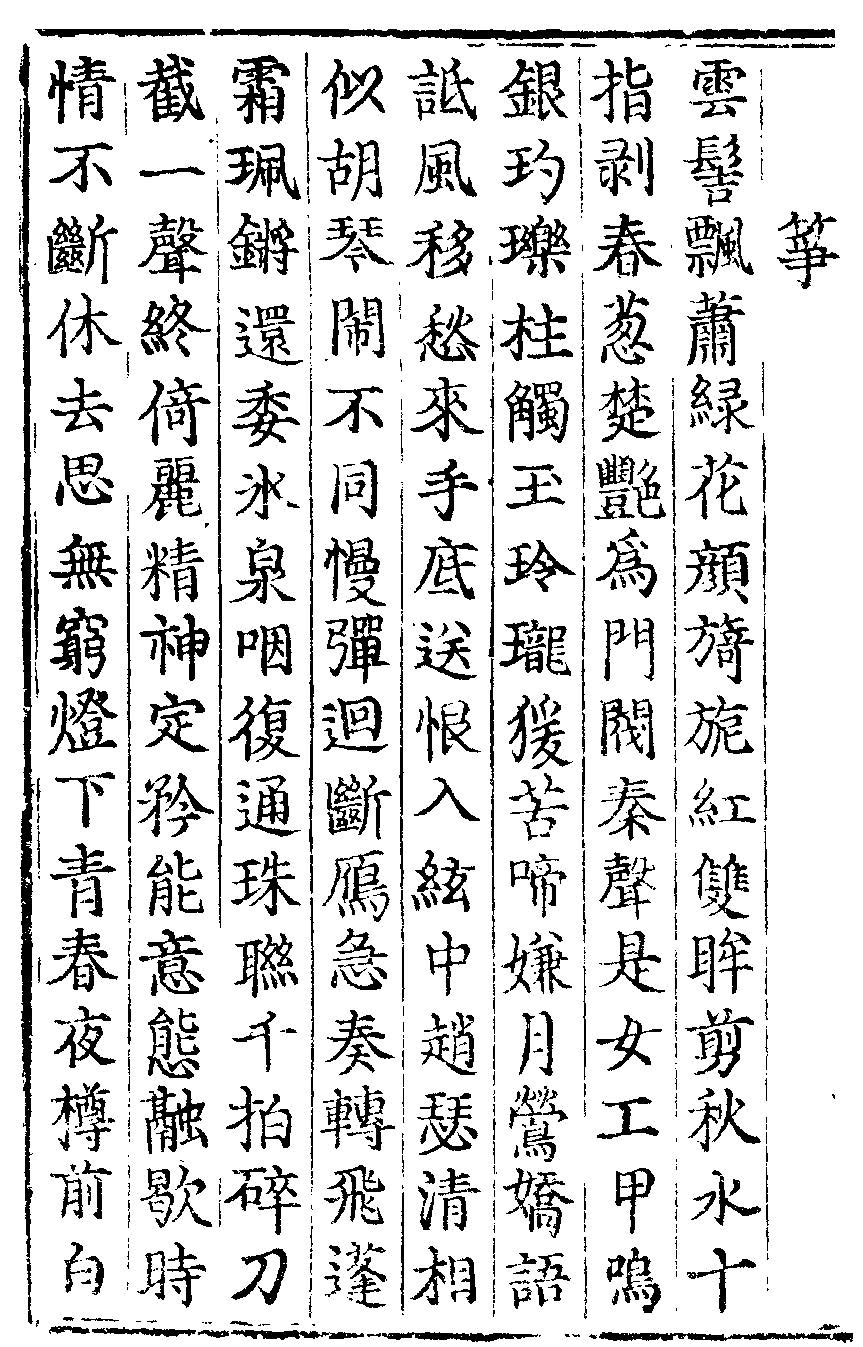 箏
雲髻飄蕭緑花顔旖旎紅雙眸剪秋水十
指剥春葱楚艷爲門閥秦聲是女工甲嗚
銀玓瓅柱觸玉玲瓏猨苦啼嫌月鶯嬌語
詆風移愁來手底送恨入絃中趙瑟清相
似胡琴鬧不同慢彈迴斷鴈急奏轉飛蓬
霜珮鏘還委氷泉咽復通珠聯千拍碎刀
截一聲終倚麗精神定矜能意態融歇時
情不斷休去思無窮燈下青春夜樽前白